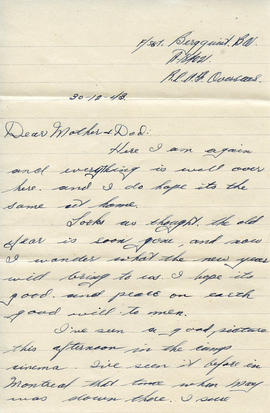 F/Sgt. Bergquist B.W.
R.C.A.F. Overseas.
30-12-43.
Dear Mother & Dad:
Here I am again
and everything is well over
here. and I do hope its the
same at home.
Looks as thought the old
year is soon gone, and now
I wonder what the new year
will bring to us. I hope its
good. and peace on earth
good will to men.
I've seen a good picture
this afternoon in the camp
cinema. I've seen it before in
Montreal that time when May
was down there. I saw